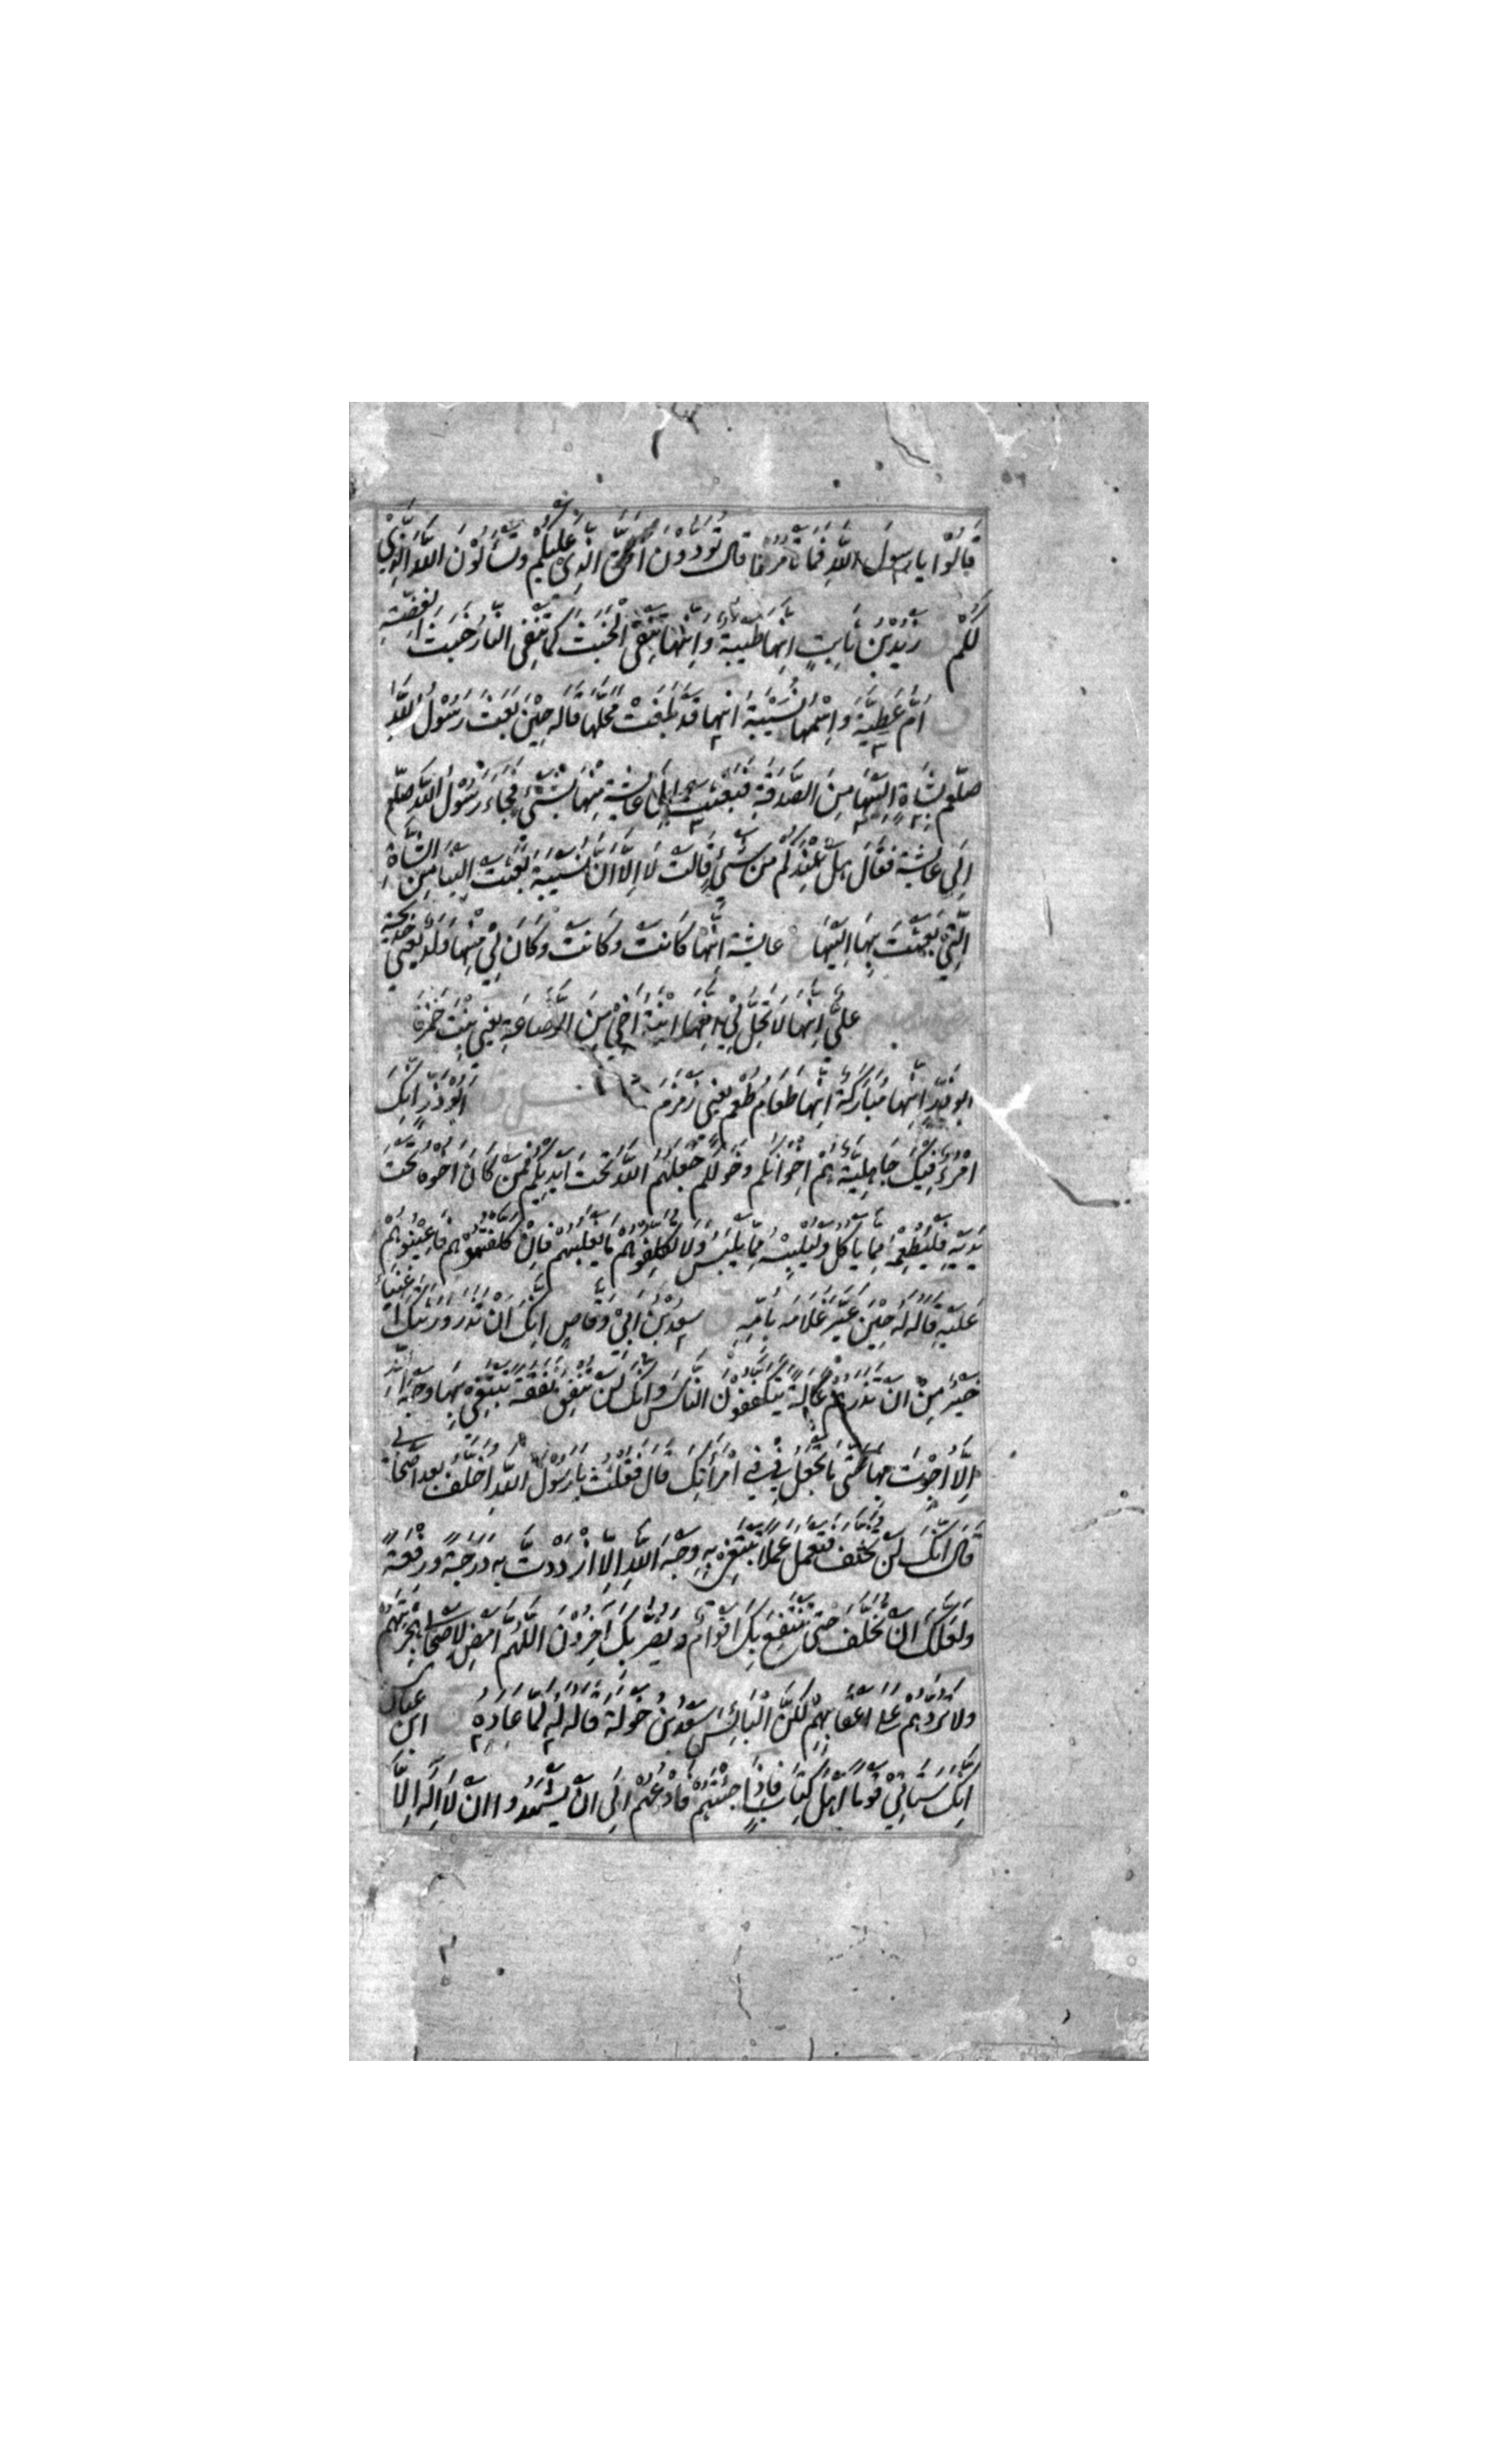 قَالُوْا يَا رَسُولَ اللّٰهِ فَمَا تَأمُرُنَا قَالَ تُؤَدُّوْنَ الْحَقَّ الَّذِىْ عَلَيْكُمْ وَتَسْأَلُوْنَ اللّٰهَ الَّذِىْ
لَكُمْ زَيْدُ بْنُ ثَابِتٍ اِنَّهَا طَيِّبَةٌ وَاِنَّهَا تَنْفِى الْخَبَثَ كَمَا تَنْفِى النَّارُ خَبَثَ الْفِضَّةِ
اُمُّ عَطِيَّةَ وَاِسْمُهَا نُسَيْبَةُ اِنَّهَا قَدْ بَلَغَتْ مَحَلَّهَا قَالَهُ حِيْنَ بَعَثَ رَسُوْلُ اللّٰهِ
صلّعم بِشَاةٍ اِلَيْهَا مِنَ الصَّدَقَةِ فَبَعَثَتْ اِلٰى عَائِشَةَ مِنْهَا بِشَىْءٍ فَجَاءَ رَسُوْلُ اللّٰهِ صلّعم
اِلٰى عَائِشَةَ فَقَالَ هَلْ عِنْدَكُمْ مِنْ شَىْءٍ قَالَتْ لَا اِلَّا اَنَّ نُسَيْبَةَ بَعَثَتْ اِلَيْنَا مِنَ الشَّاةِ
الَّتِىْ بَعَثْتَ بِهَا اِلَيْهَا عَائِشَة اِنَّهَا كَانَتْ وَكَانَتْ وَكَانَ لِىْ مِنْهَا وَلَدٌ يَعْنِىْ خَدِيْجَةَ
عَلِىٌّ اِنَّهَا لَا تَحِلُّ لِىْ اِنَّهَا ابْنَةُ اَخِىْ مِنَ الرَّضَاعَةِ يَعْنِىْ بِنْتَ حَمْزَةَ
ابو ذَرٍّ اِنَّهَا مُبَارَكَةٌ اِنَّهَا طَعَامُ طُعْمٍ يَعْنِىْ زَمْزَمَ اَبُوْ ذَرٍّ اِنَّكَ
امْرُءٌ فِيْكَ جَاهِلِيَّةٌ هُمْ اِخْوَانُكُمْ وَخَوَلُكُمْ جَعَلَهُمُ اللّٰهُ تَحْتَ اَيْدِيْكُمْ فَمَنْ كَانَ اَخُوْهُ تَحْتَ
يَدَيْهِ فَلْيُطْعِمْهُ مِمَّا يَأْكُلُ وَلْيُلْبِسْهُ مِمَّا يَلْبَسُ وَلَا تُكَلِّفُوْهُمْ مَا يَغْلِبُهُمْ فَاِنْ كَلَّفْتُمُوْهُمْ فَاَعِيْنُوْهُمْ
عَلَيْهِ قَالَهُ لَهُ حِيْنَ عَيَّرَ غُلَامَهُ بِاُمِّهِ سَعْدُ بْنُ اَبِىْ وَقَّاصٍ اِنَّكَ اَنْ تَذَرَ وَرَثَتَكَ اَغْنِيَاءَ
خَيْرٌ مِنْ اَنْ تَذَرَهُمْ عَالَةً يَتَكَفَّفُوْنَ النَّاسَ وَاِنَّكَ لَنْ تُنْفِقَ نَفَقَةً تَبْتَغِىْ بِهَا وَجْهَ اللّٰهِ
اِلَّا اُجِرْتَ بِهَا حَتّٰى مَا تَجْعَلُ فِىْ فِىْ امْرَأَتِكَ قَالَ فَقُلْتُ يَا رَسُوْلَ اللّٰهِ اُخَلَّفُ بَعْدَ اَصْحَابِىْ
قَالَ اِنَّكَ لَنْ تُخَلَّفَ فَتَعْمَلَ عَمَلًا تَبْتَغِىْ بِهِ وَجْهَ اللّٰهِ اِلَّا ازْدَدْتَ بِهِ دَرَجَةً وَرِفْعَةً
وَلَعَلَّكَ اَنْ تُخَلَّفَ حَتّٰى يَنْتَفِعَ بِكَ اَقْوَامٌ وَيُضَرَّ بِكَ آخَرُوْنَ اَللّٰهُمَّ اَمْضِ لِاَصْحَابِىْ هِجْرَتَهُمْ
وَلَا تَرُدَّهُمْ عَلٰى اَعْقَابِهِمْ لٰكِنَّ الْبَائِسَ سَعْدُ بْنُ خَوْلَةَ قَالَهُ لَهُ لَمَّا عَادَهُ ابن عباس
اِنَّكَ سَتَأْتِىْ قَوْمًا اَهْلَ كِتَابٍ فَاِذَا جِئْتَهُمْ فَادْعُهُمْ اِلٰى اَنْ يَشْهَدُوا اَنْ لَا اِلٰهَ اِلَّا